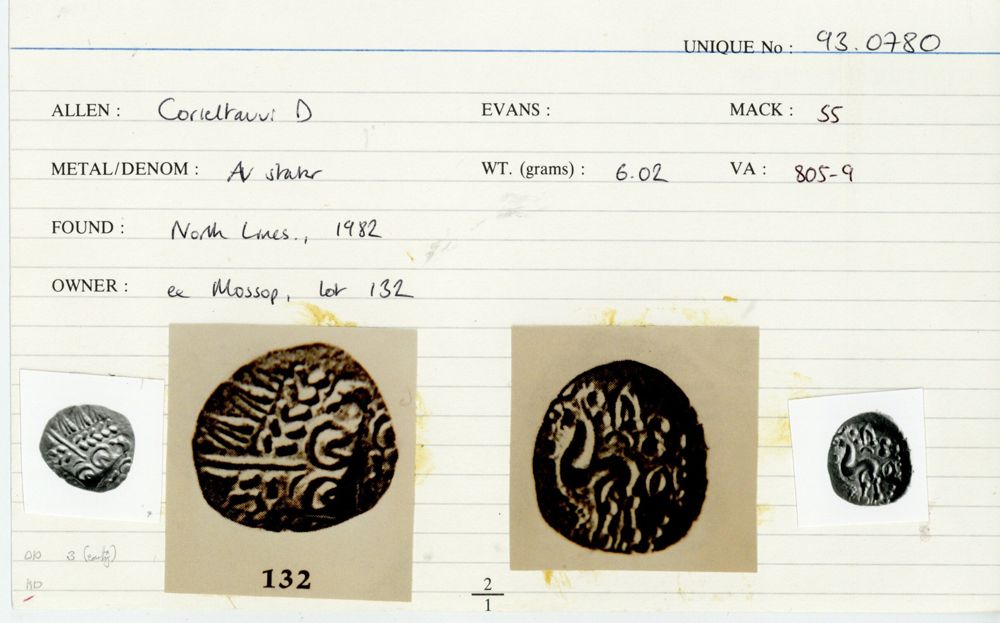 UNIQUE No : 93.0780
ALLEN : Corieltauvi D EVANS : MACK : 55
METAL/DENOM : AV stater WT. (grams) : 6.02 VA : 805-9
FOUND : North Lincs., 1982
OWNER : ex Mossop, lot 132
132
3 (early)
2
1